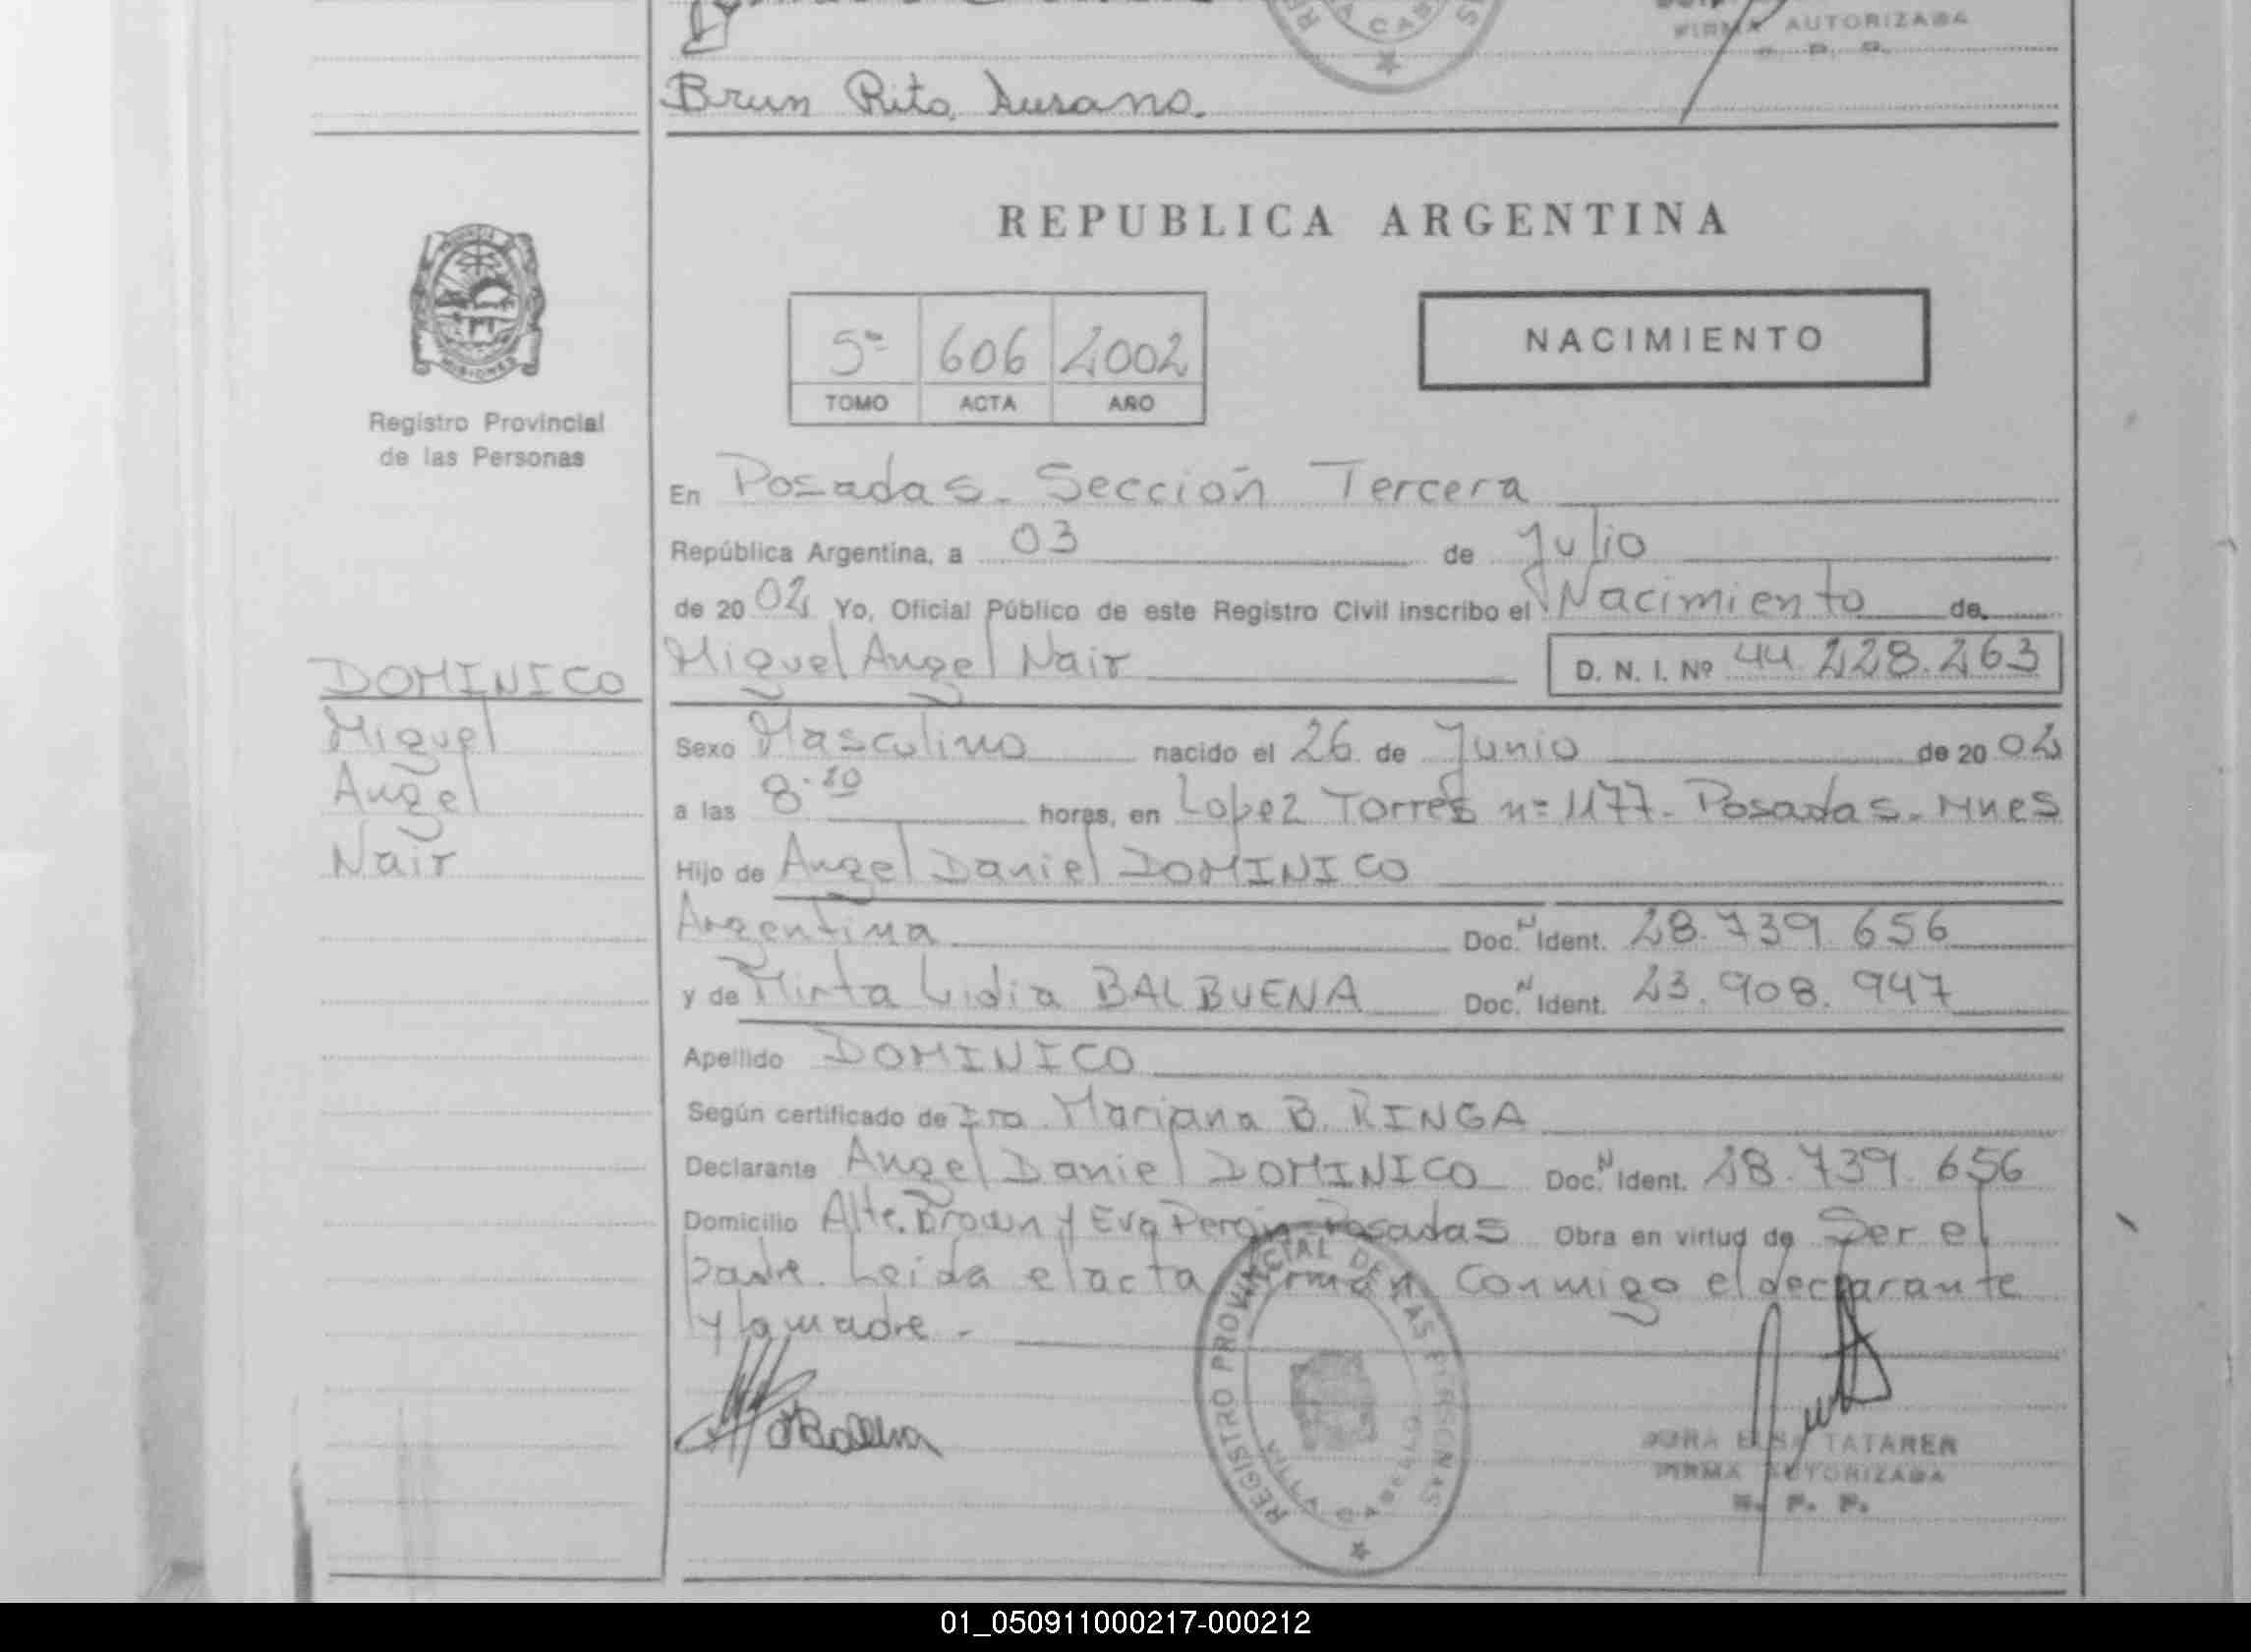 FIRMA AUTORIZADA
Brun Rita Susana.
REPUBLICA ARGENTINA
MISIONES
Registro Provincial
de las Personas
5º 606 2002
TOMO ACTA AÑO
NACIMIENTO
En Posadas - Sección Tercera
República Argentina, a 03 de Julio
de 2002 Yo, Oficial Público de este Registro Civil inscribo el Nacimiento de
Miguel Angel Nair D. N. I. Nº 44.228.263
DOMINICO
Miguel
Angel
Nair
Sexo Masculino nacido el 26 de Junio de 2002
a las 8. horas, en Lopez Torres nº 1177 - Posadas - Mnes
Hijo de Angel Daniel DOMINICO
Argentina Doc. N Ident. 28.739.656
y de Mirta Lidia BALBUENA Doc. N Ident. 23.908.947
Apellido DOMINICO
Según certificado de Dra. Mariana B. RINGA
Declarante Angel Daniel DOMINICO Doc. N Ident. 28.739.656
Domicilio Alte. Brown y Eva Peron - Posadas Obra en virtud de Ser el
padre. Leida el acta firman conmigo el declarante
y la madre -
REGISTRO PROVINCIAL DE LAS PERSONAS
VILLA CABELLO
DORA ELSA TATAREN
FIRMA AUTORIZADA
R. P. P.
01_050911000217-000212